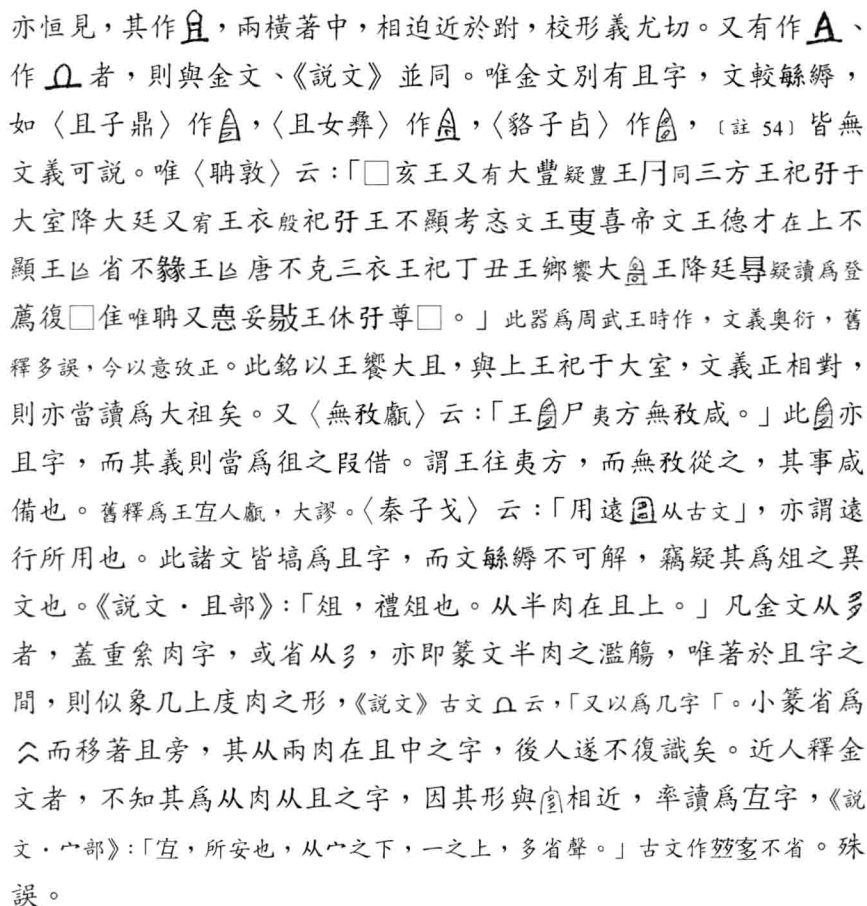 亦恒見，其作，兩橫著中，相迫近於跗，校形義尤切。又有作、
作者，則與金文、《說文》並同。唯金文別有且字，文較緐縟，
如〈且子鼎〉作，〈且女彝〉作，〈貉子卣〉作，〔註 54〕皆無
文義可說。唯〈聃敦〉云：「□亥王又有大豐疑豊王同三方王祀于
大室降大廷又宥王衣殷祀王不顯考忞文王喜帝文王德才在上不
顯王省不王唐不克三衣王祀丁丑王鄉饗大王降廷疑讀爲登
薦復□隹唯聃又妥王休尊□。」此器爲周武王時作，文義奧衍，舊
釋多誤，今以意攷正。此銘以王饗大且，與上王祀于大室，文義正相對，
則亦當讀爲大祖矣。又〈無敄甗〉云：「王尸夷方無敄咸。」此亦
且字，而其義則當爲徂之叚借。謂王往夷方，而無敄從之，其事咸
備也。舊釋爲王宐人甗，大謬。〈秦子戈〉云：「用遠从古文」，亦謂遠
行所用也。此諸文皆塙爲且字，而文緐縟不可解，竊疑其爲俎之異
文也。《說文．且部》：「俎，禮俎也。从半肉在且上。」凡金文从
者，蓋重絫肉字，或省从，亦即篆文半肉之濫觴，唯著於且字之
間，則似象几上庋肉之形，《說文》古文云，「又以爲几字「。小篆省爲
而移著且旁，其从兩肉在且中之字，後人遂不復識矣。近人釋金
文者，不知其爲从肉从且之字，因其形與相近，率讀爲宐字，《說
文．宀部》：「宐，所安也，从宀之下，一之上，多省聲。」古文作不省。殊
誤。